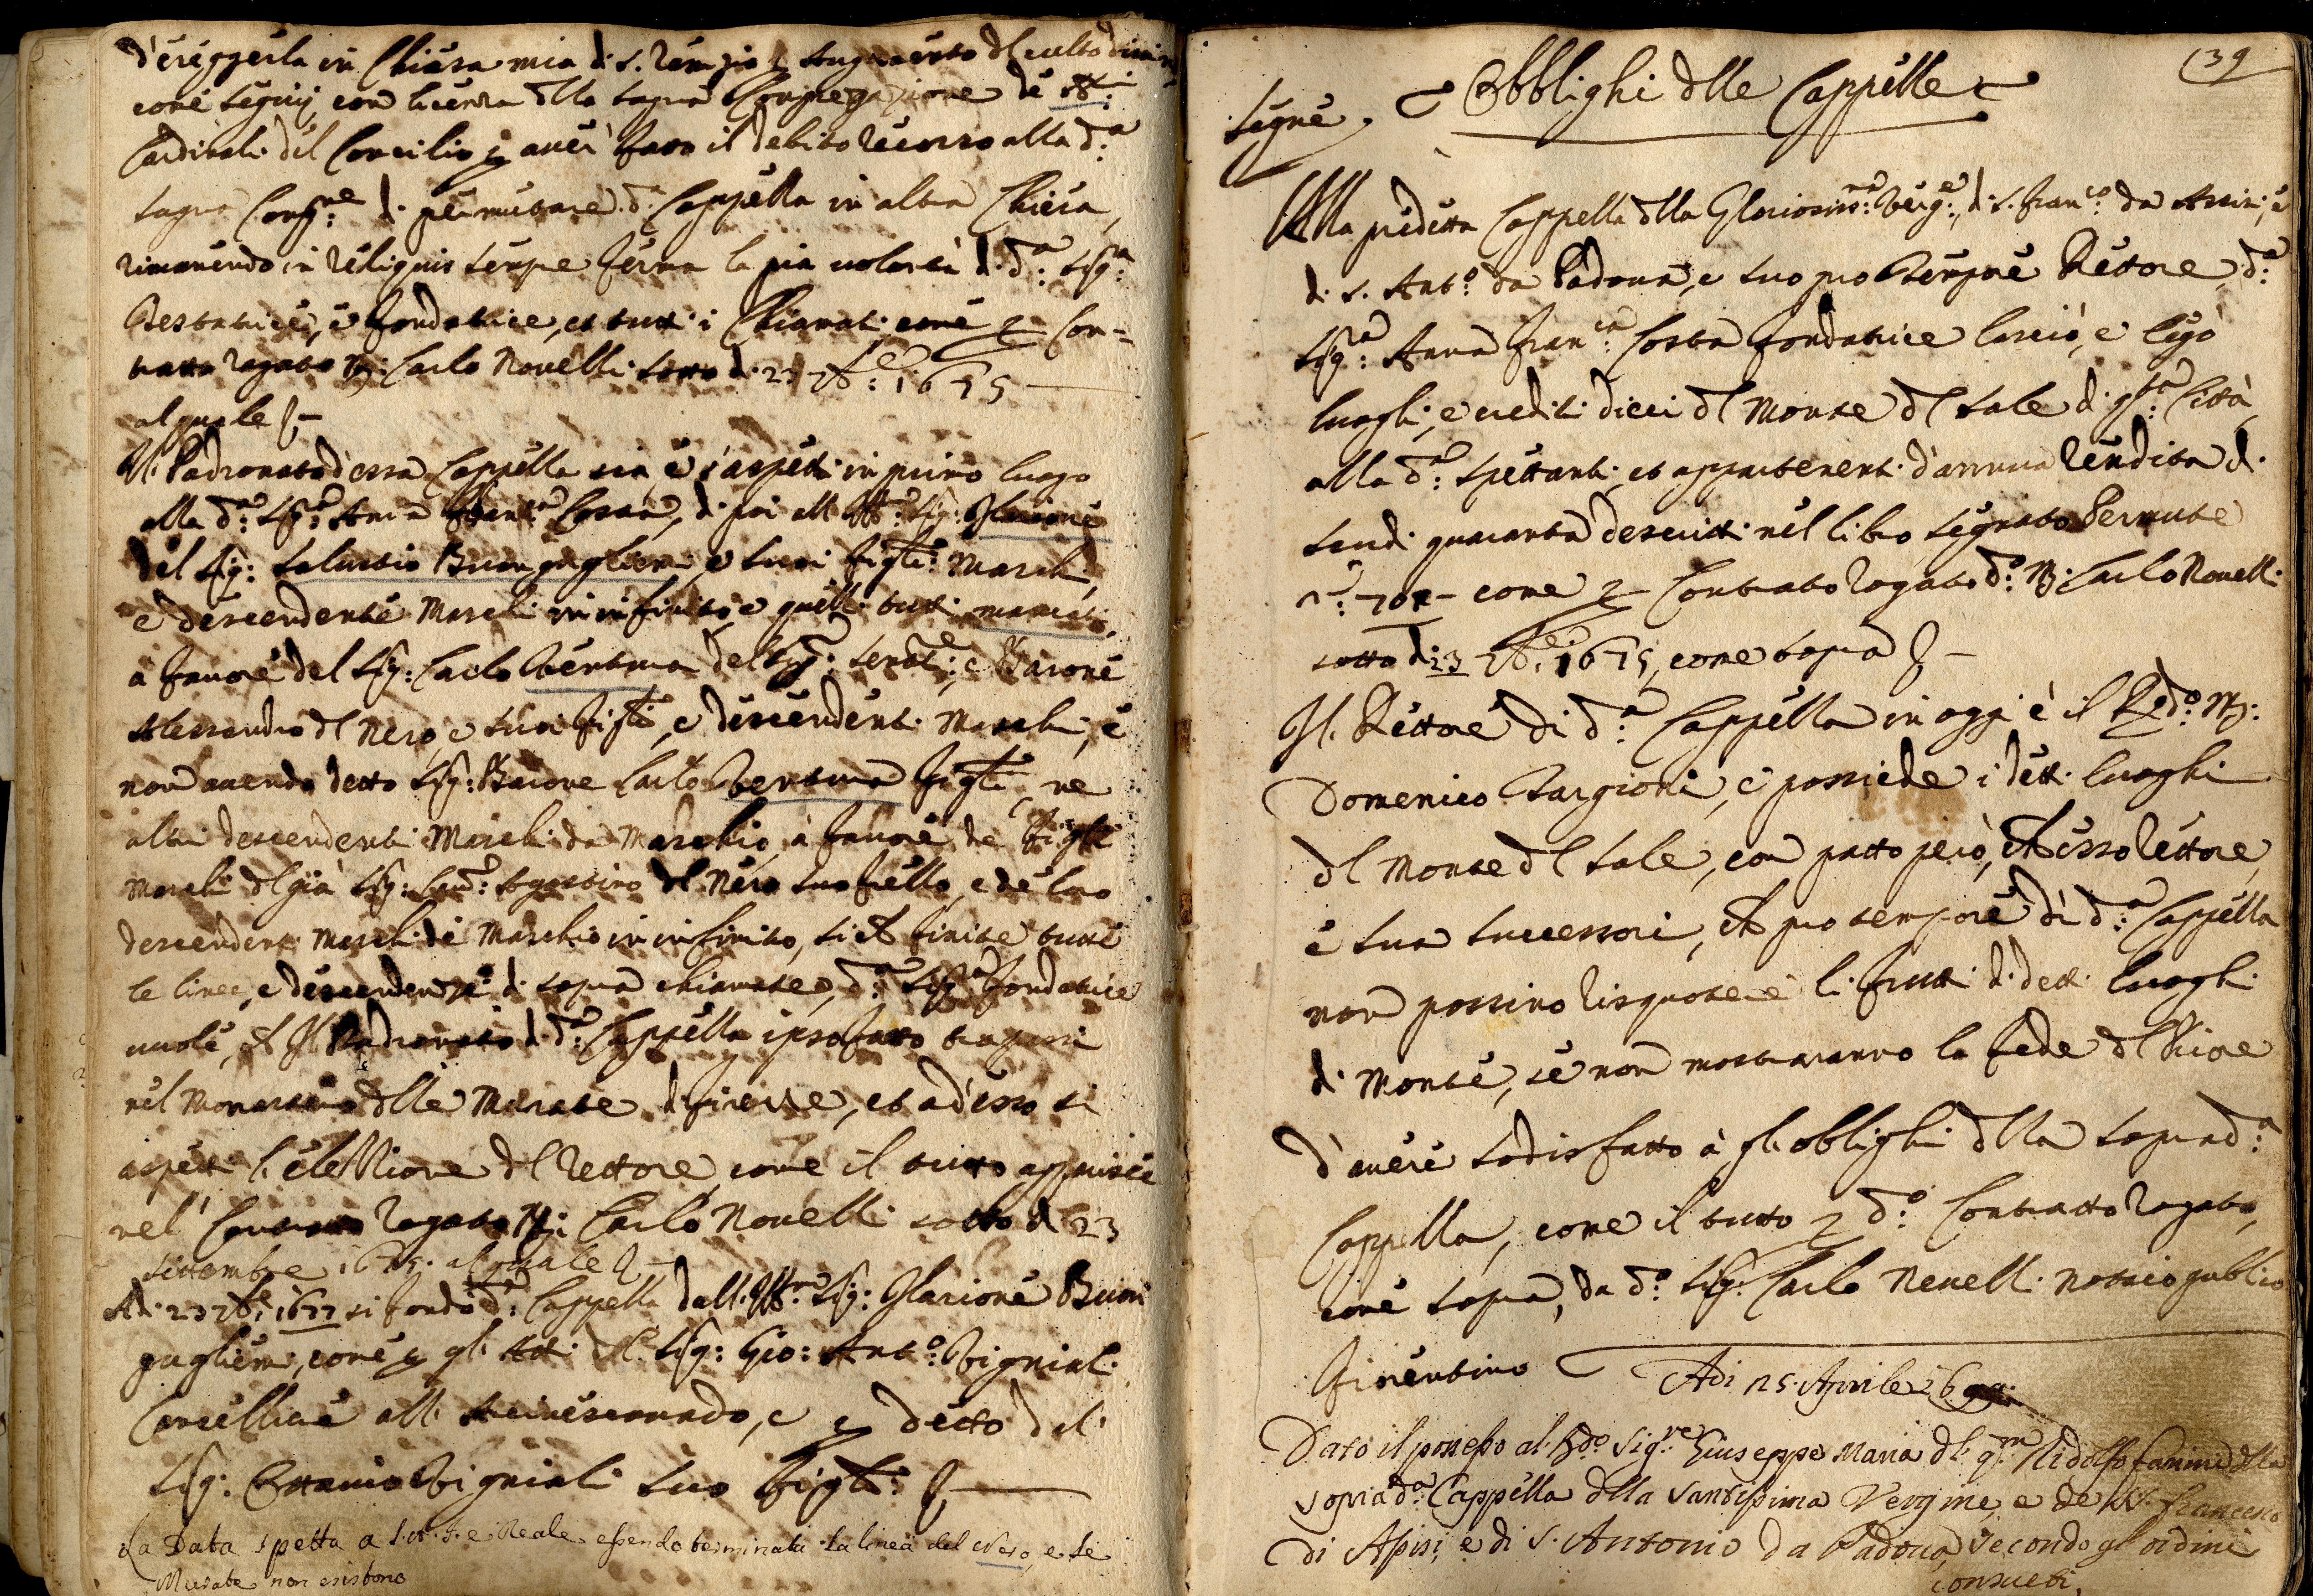 d'erigerla in Chiesa mia di S. Remigio p augumento del culto divino
come seguij con licenza dlla sagra Congregazione de SS:i
Cardinali del Concilio p aver fatto il debito recorso alla d:a
sagra Cong:ne di permutare d:a Cappella in altra Chiesa,
rimanendo in reliquis sempre ferma la pia volontà di d:a Sig:a
Testatrice, e fondatrice, et tutti i Chiamati come p Con-
tratto rogato M: Carlo Novelli sotto di 23 7bre: 1675
al quale
Il Padronato d'essa Cappella sia e s'aspetti in primo luogo
alla d:a Sig:a Anna Fran:ca Costa, di poi all Ill:mo Sig: Ilarione
del Sig: Salustio Buonguglielmi e suoi figli: Maschi,
e descendenti Maschi in infinito, e quelli tutti mancati,
a favore del Sig: Carlo Ventura del Sig: Senat:re, e Barone
Alessandro dl Nero, e suoi figli, e descendenti Maschi, e
non avendo detto Sig: Barone Carlo Ventura figli, ne
altri descendenti Maschi da Maschio, a favore de figli
Maschi del già Sig: Agostino dl Nero suo frello, e de loro
descendenti Maschi di Maschio in infinito, finite tutte
le linee, e descendenze di sopra chiamate, d:a Sig:a fondatrice
vuole, Il Padronato di d:a Cappella ipso fatto trapassi
nel Monastero dlle Murate di firenze, et ad esso si
aspetti l'elezzione dl Rettore, come il tutto apparisce
nel Contratto rogato M: Carlo Novelli sotto di 23
settembre 1675. al quale
Adi 23 7bre: 1677 si fondò d:a Cappella dall. Ill:mo Sig: Ilarione Buon
guglielmi, come p gli Atti dl. Sig: Gio: Ant:o Vignali
Cancelliere all' Arcivescovado, e p detto del
Sig: Ottavio Vignali suo figli:
La Data spetta a S. A. I. e Reale essendo terminata la linea del Nero, e le
Murate non esistono
139
Segue. Obblighi dlle Cappelle
Alla predetta Cappella dlla Gloriosiss:ma Verg:e, di S. Fran:co da Assisi, e
di S. Ant:o da Padova, e suo pro tempore Rettore, d:a
Sig:a Anna Fran:ca Costa fondatrice lasciò, e legò
luoghi, e crediti dieci dl Monte dl Sale di q:ta Città,
alla d:a spettanti et appartenenti d'annua rendita di
scudi quaranta descritti nel libro segnato Permute
come p Contratto rogato d:o M: Carlo Novelli
sotto di 23 7bre: 1675, come sopra
Il Rettore di d:a Cappella in oggi è il R:do M:
Domenico Targioni, e possiede i detti luoghi
dl Monte dl Sale, con patto però, esso Rettore,
e sua successori, pro tempore di d:a Cappella
non possino risquotere li frutti di detti luoghi
di Monte, se non mostraranno la fede dl Priore
d'avere sodisfatto à gli oblighi dlla soprad:a
Cappella, come il tutto p d:o Contratto rogato,
come sopra, da d:o Sig: Carlo Novelli Notaio publico
Fiorentino
Adi 25 Aprile
Dato il possesso al R:do Sig:re Giuseppe Maria dl q:m Ridolfo Fanini dlla
soprad:a Cappella dlla Santissima Vergine, e de S. Francesco
di Assisi, e di S. Antonio da Padova, secondo gl'ordini
consueti.